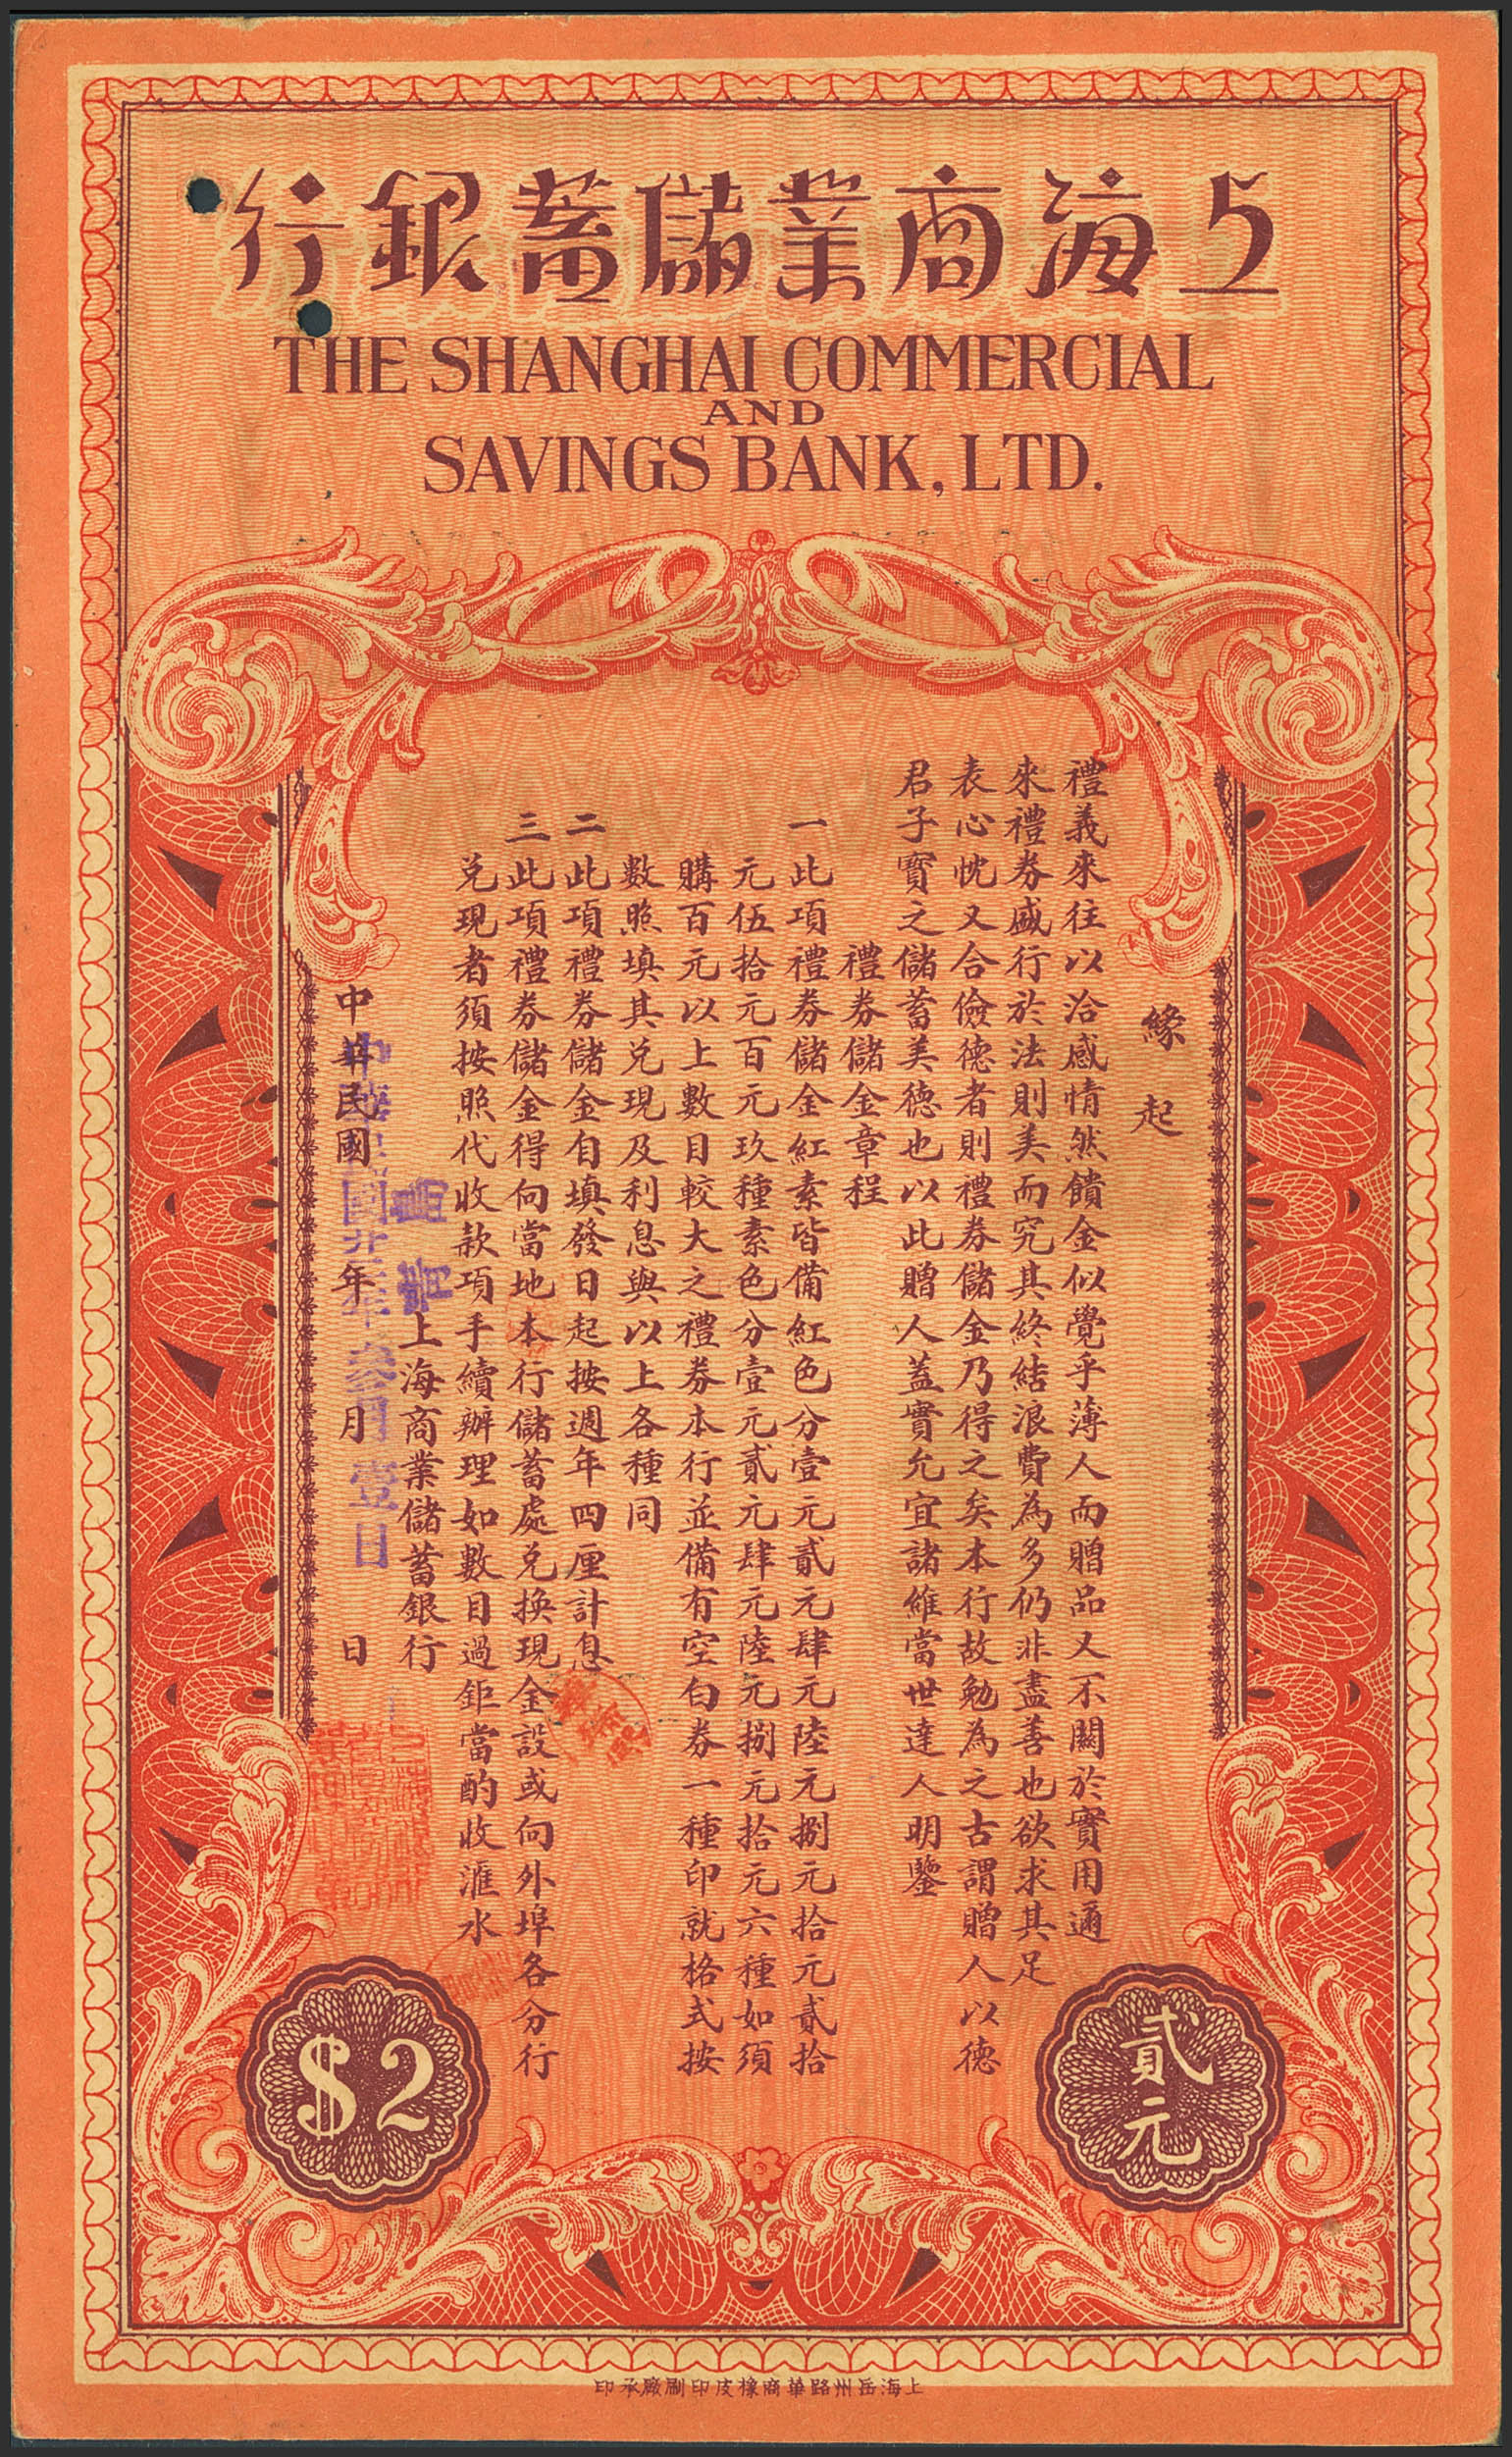 上海商業儲蓄銀行
THE SHANGHAI COMMERCIAL
AND
SAVINGS BANK, LTD.
緣起
禮義來往以洽感情然饋金似覺乎薄人而贈品又不關於實用邇
來禮券盛行於法則美而究其終結浪費為多仍非盡善也欲求其足
表心忱又合儉德者則禮券儲金乃得之矣本行故勉為之古謂贈人以德
君子寶之儲蓄美德也以此贈人蓋實允宜諸維當世達人明鑒
禮券儲金章程
一此項禮券儲金紅素皆備紅色分壹元貳元肆元陸元捌元拾元貳拾
元伍拾元百元玖種素色分壹元貳元肆元陸元捌元拾元六種如須
購百元以上數目較大之禮券本行並備有空白券一種印就格式按
數照填其兌現及利息與以上各種同
二此項禮券儲金自填發日起按週年四厘計息
三此項禮券儲金得向當地本行儲蓄處兌換現金設或向外埠各分行
兌現者須按照代收款項手續辦理如數目過鉅當酌收滙水
上海商業儲蓄銀行
中華民國 年 月 日
壹日
$2
貳元
上海岳州路華商橡皮印刷廠承印